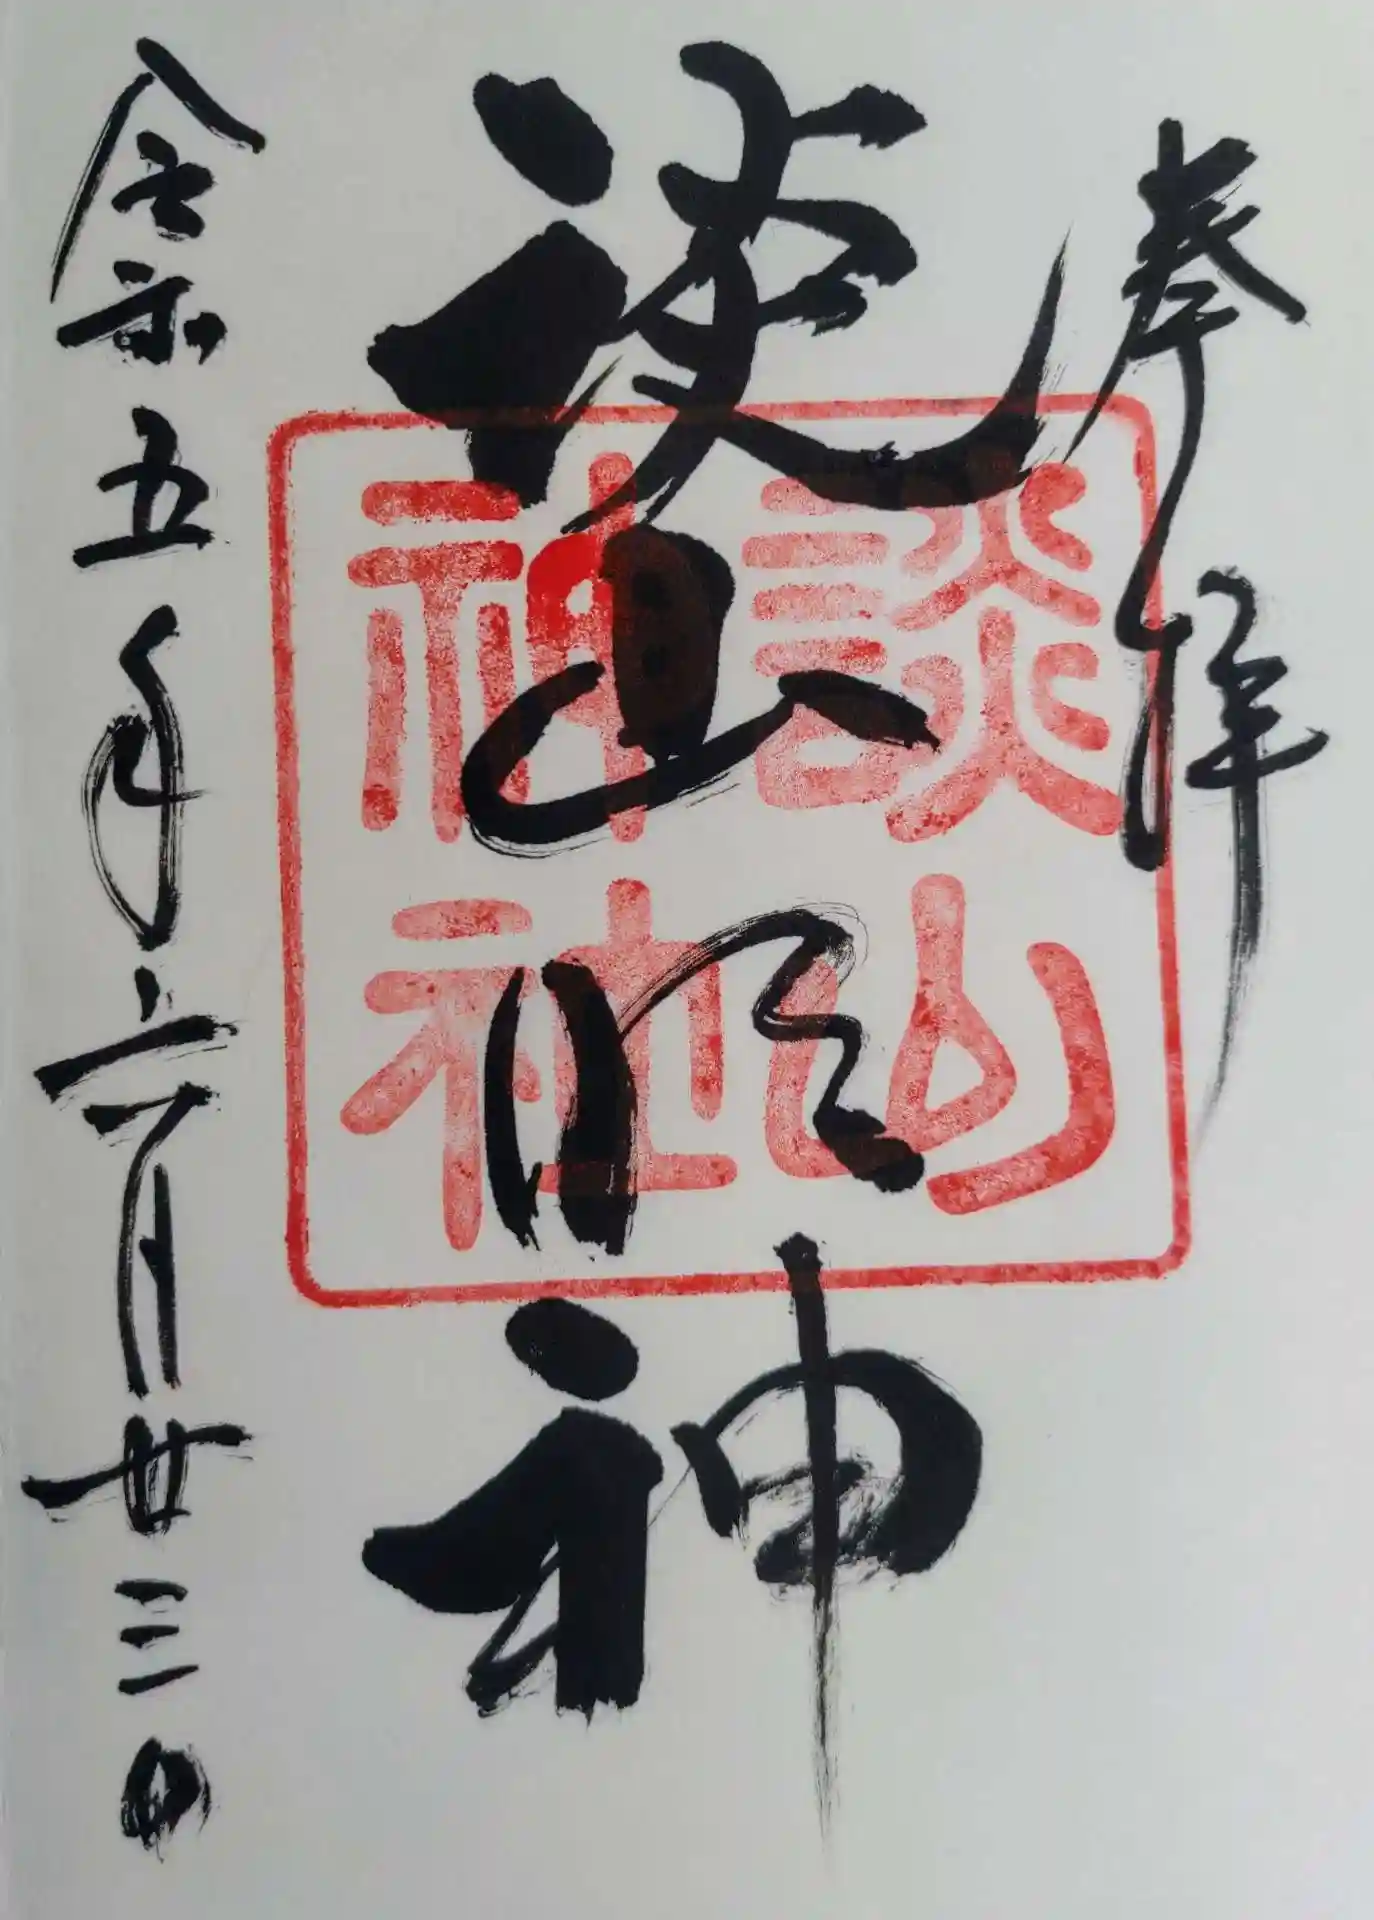 奉拝
談山明神
談山
神社
令和五年六月廿三日